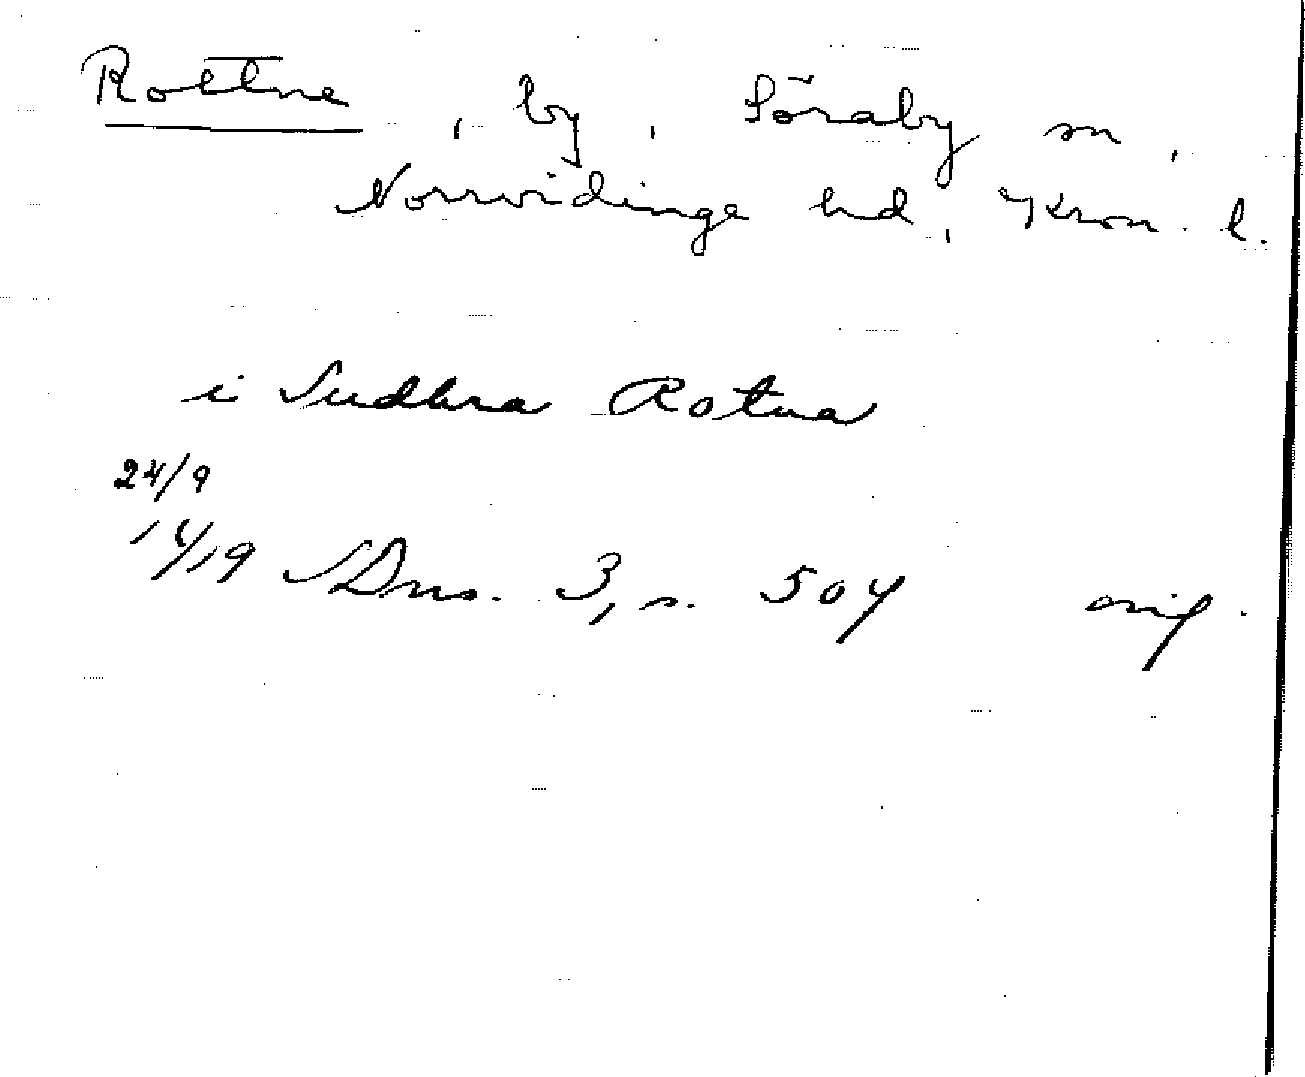 Rottne, by, Söraby sn,
Norrvidinge hd, Kron. l.
i Sudhra Rotna
24/9
14/19 SDns. 3, s. 507 orig.